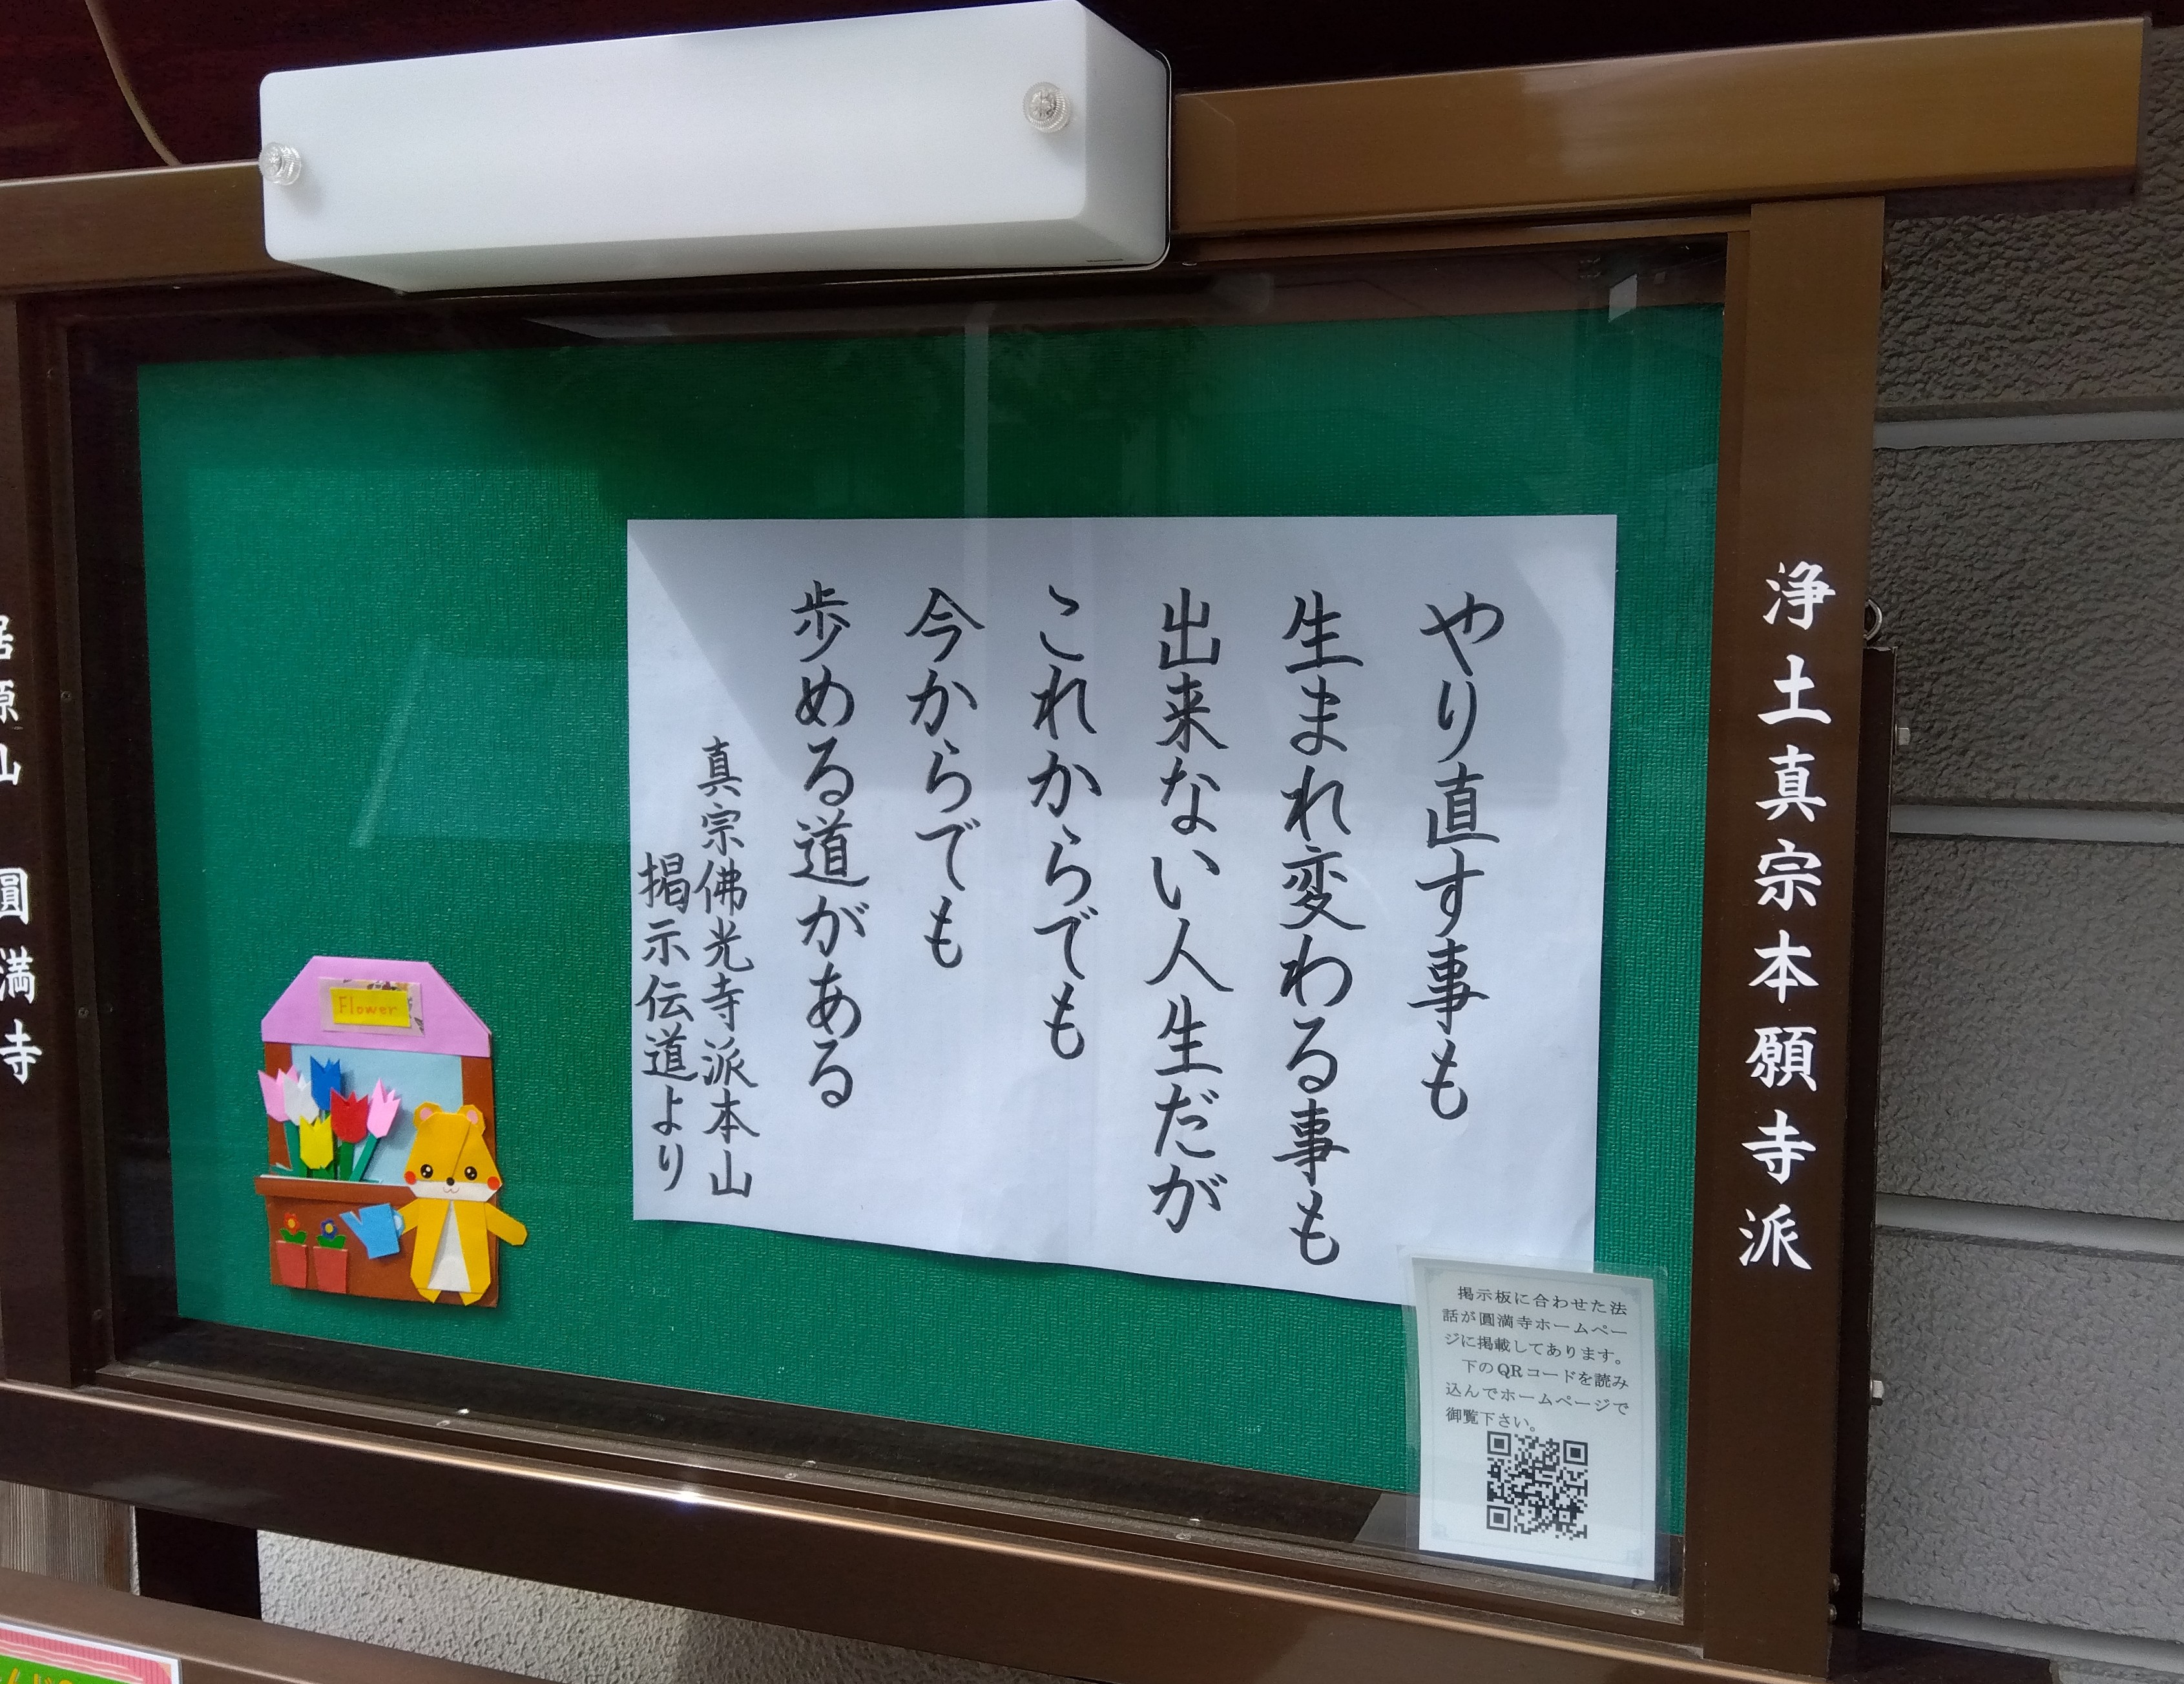 浄土真宗本願寺派
やり直す事も
生まれ変わる事も
出来ない人生だが
これからでも
今からでも
歩める道がある
真宗佛光寺派本山
掲示伝道より
Flower
掲示板に合わせた法
話が圓満寺ホームペー
ジに掲載してあります。
下のQRコードを読み
込んでホームページで
御覧下さい。
原山 圓満寺